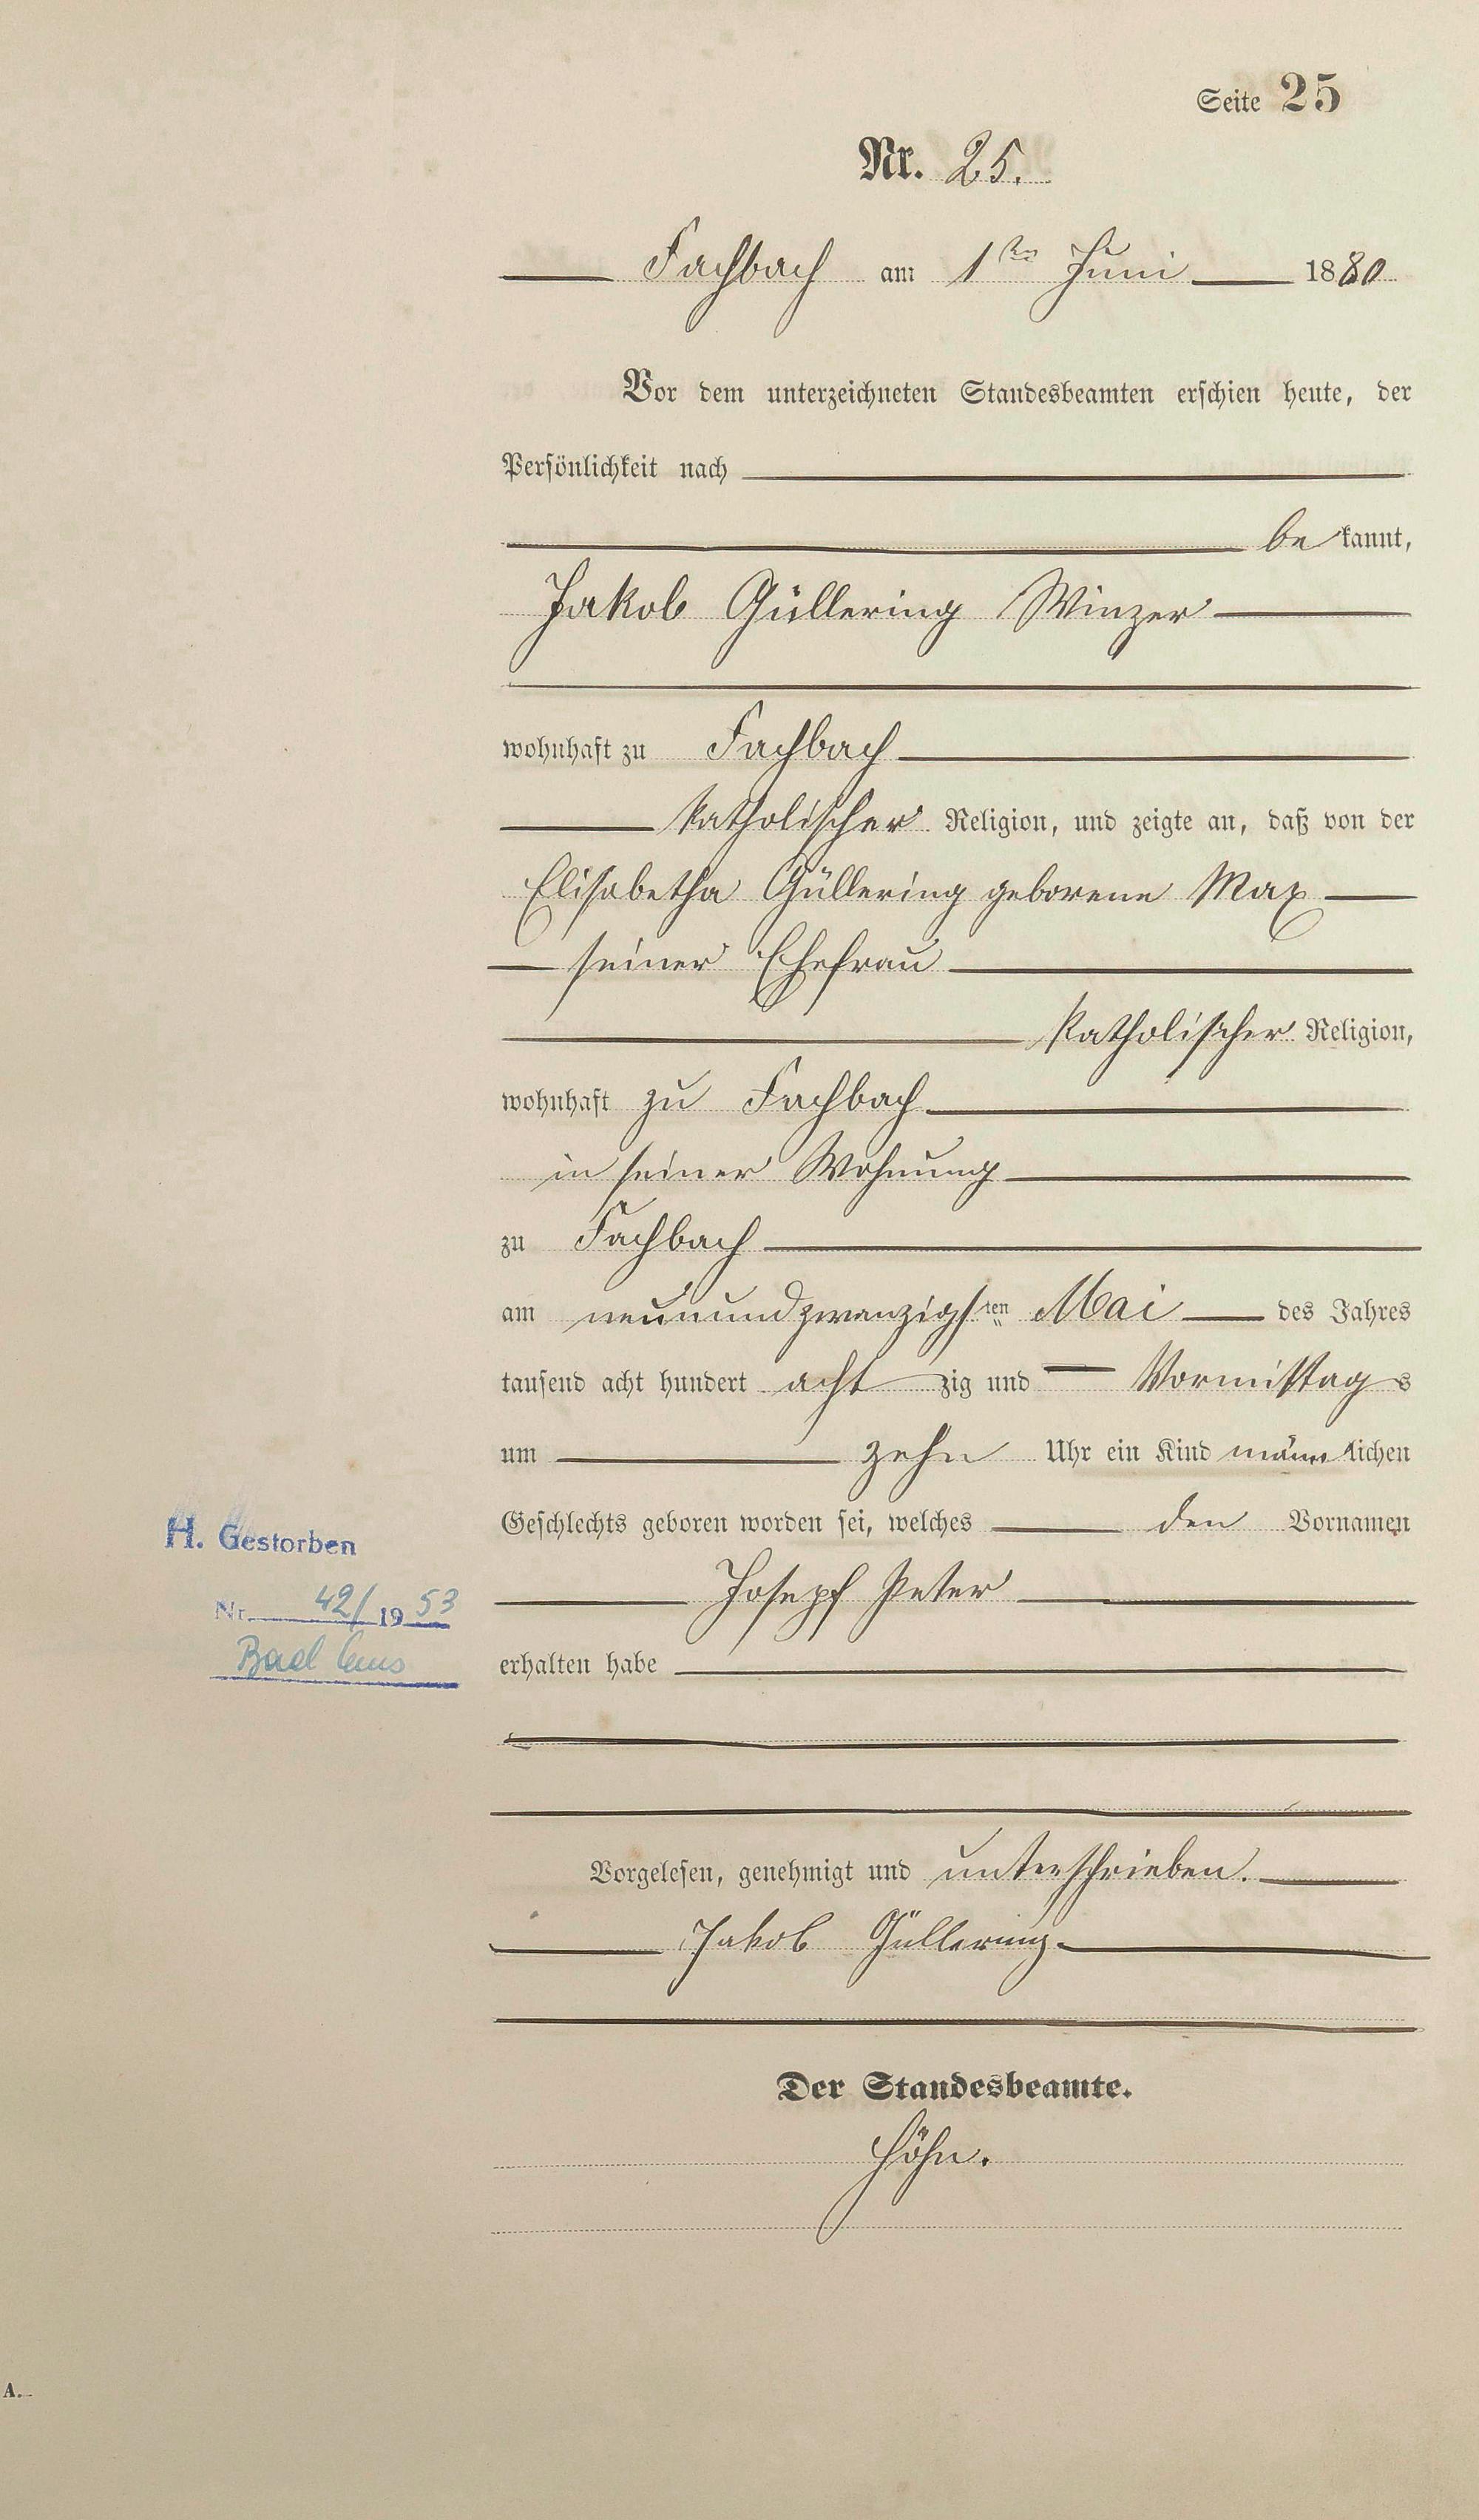 Seite 25
Nr. 25.
Fachbach am 1ten Juni 1880
Vor dem unterzeichneten Standesbeamten erschien heute, der
Persönlichkeit nach
be kannt,
Jakob Güllering Winzer
wohnhaft zu Fachbach
katholischer Religion, und zeigte an, daß von der
Elisabetha Güllering geborene Max
seiner Ehefrau
katholischer Religion,
wohnhaft zu Fachbach
in seiner Wohnung
zu Fachbach
am neunundzwanzigsten Mai des Jahres
tausend acht hundert acht zig und Vormittags
um zehn Uhr ein Kind männlichen
Geschlechts geboren worden sei, welches den Vornamen
H. Gestorben
Josepf Peter
Nr. 42/1953
Bad Ems
erhalten habe
Vorgelesen, genehmigt und unterschrieben.
Jakob Güllering
Der Standesbeamte.
Höhn.
A.